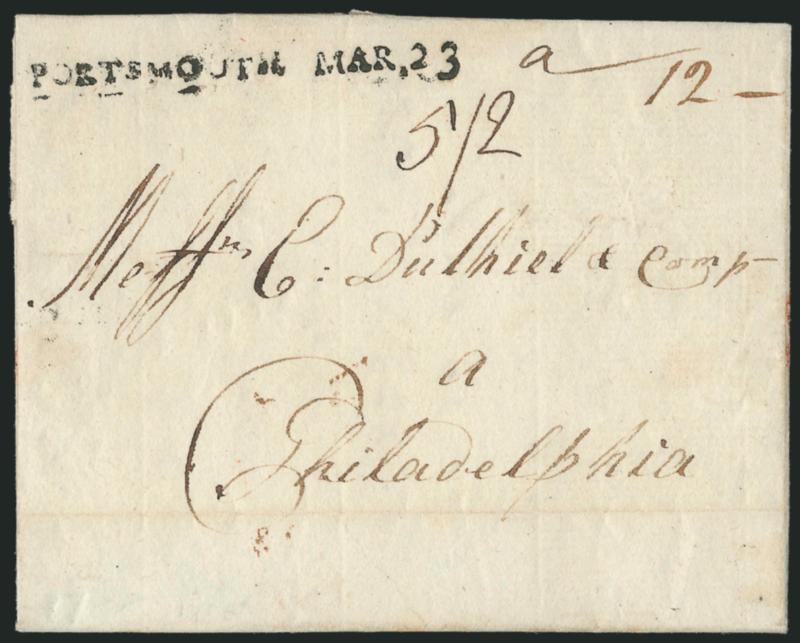 PORTSMOUTH MAR, 23 a 12 —
5/2
Messrs C: Duthiel & Comp
a
Philadelphia